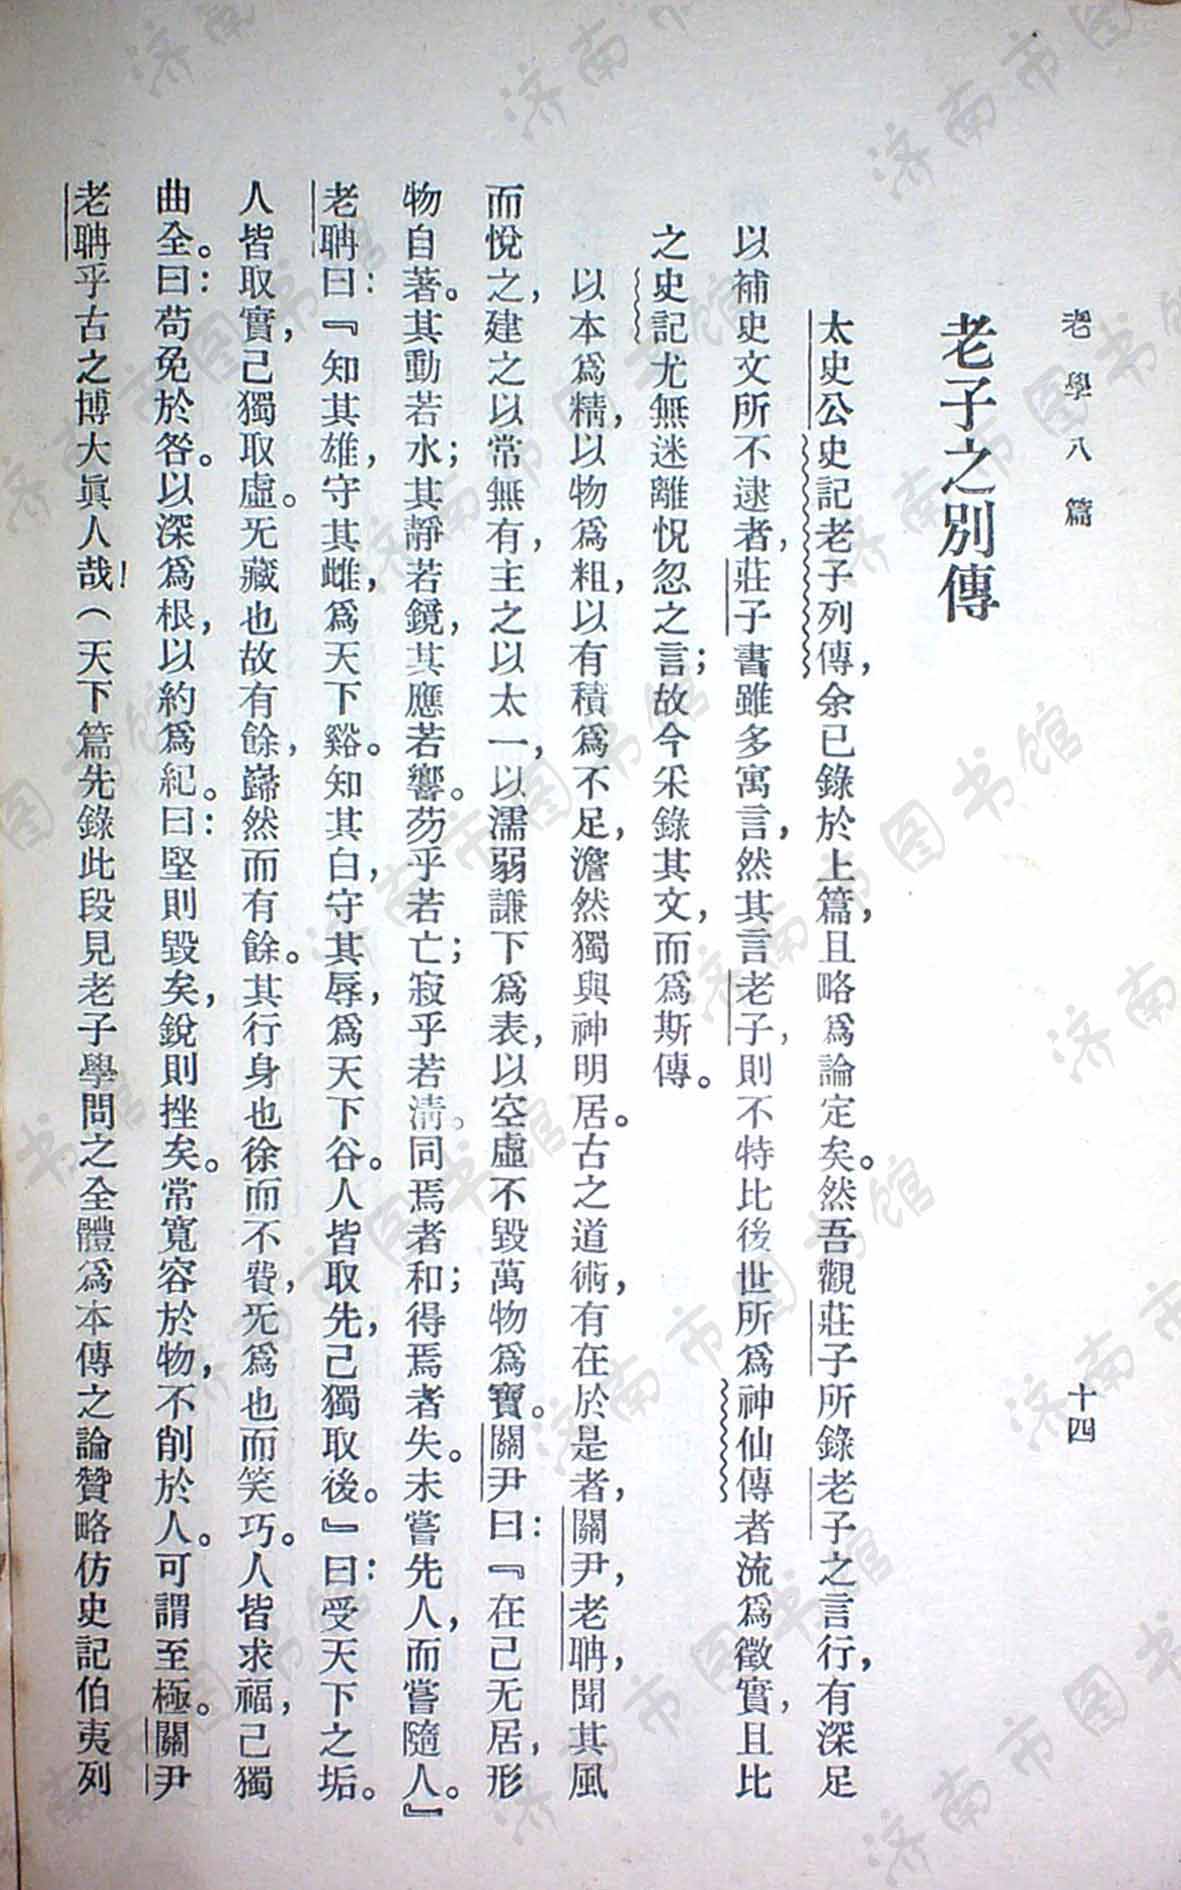 老學八篇
十四
老子之別傳
太史公史記老子列傳，余已錄於上篇，且略爲論定矣。然吾觀莊子所錄老子之言行，有深足
以補史文所不逮者，莊子書雖多寓言，然其言老子，則不特比後世所爲神仙傳者流爲徵實，且比
之史記尤無迷離怳忽之言；故今采錄其文，而爲斯傳。
以本爲精，以物爲粗，以有積爲不足，澹然獨與神明居。古之道術，有在於是者，關尹，老聃，聞其風
而悅之，建之以常無有，主之以太一，以濡弱謙下爲表，以空虛不毀萬物爲實。關尹曰：『在己无居，形
物自著。其動若水；其靜若鏡，其應若響。芴乎若亡；寂乎若淸。同焉者和；得焉者失。未嘗先人，而嘗隨人。』
老聃曰：『知其雄，守其雌，爲天下谿。知其白，守其辱，爲天下谷。人皆取先，己獨取後。』曰：受天下之垢。
人皆取實，己獨取虛。旡藏也故有餘，巋然而有餘。其行身也徐而不費，旡爲也而笑巧。人皆求福，己獨
曲全。曰：苟免於咎。以深爲根，以約爲紀。曰：堅則毀矣，銳則挫矣。常寬容於物，不削於人。可謂至極。關尹
老聃乎古之博大眞人哉！（天下篇先錄此段見老子學問之全體爲本傳之論贊略仿史記伯夷列
济南市图书馆
济南市图书馆
济南市图书馆
济南市图书馆
济南市图书馆
济南市图书馆